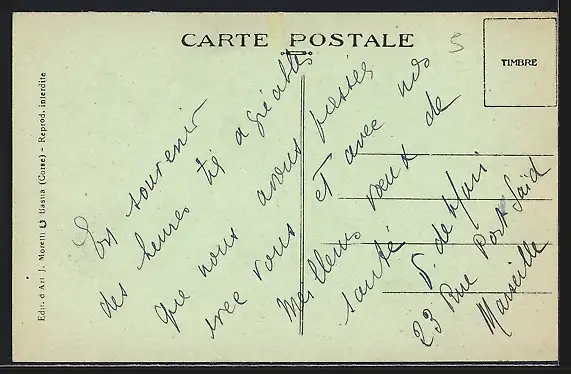 CARTE POSTALE
5
TIMBRE
Edit. d'Art J. Moretti Bastia (Corse) - Reprod. interdite
En souvenir
des heures très agréables
que nous avons passées
avec vous et avec nos
meilleurs vœux de
santé
23 Rue Port Saïd
Marseille